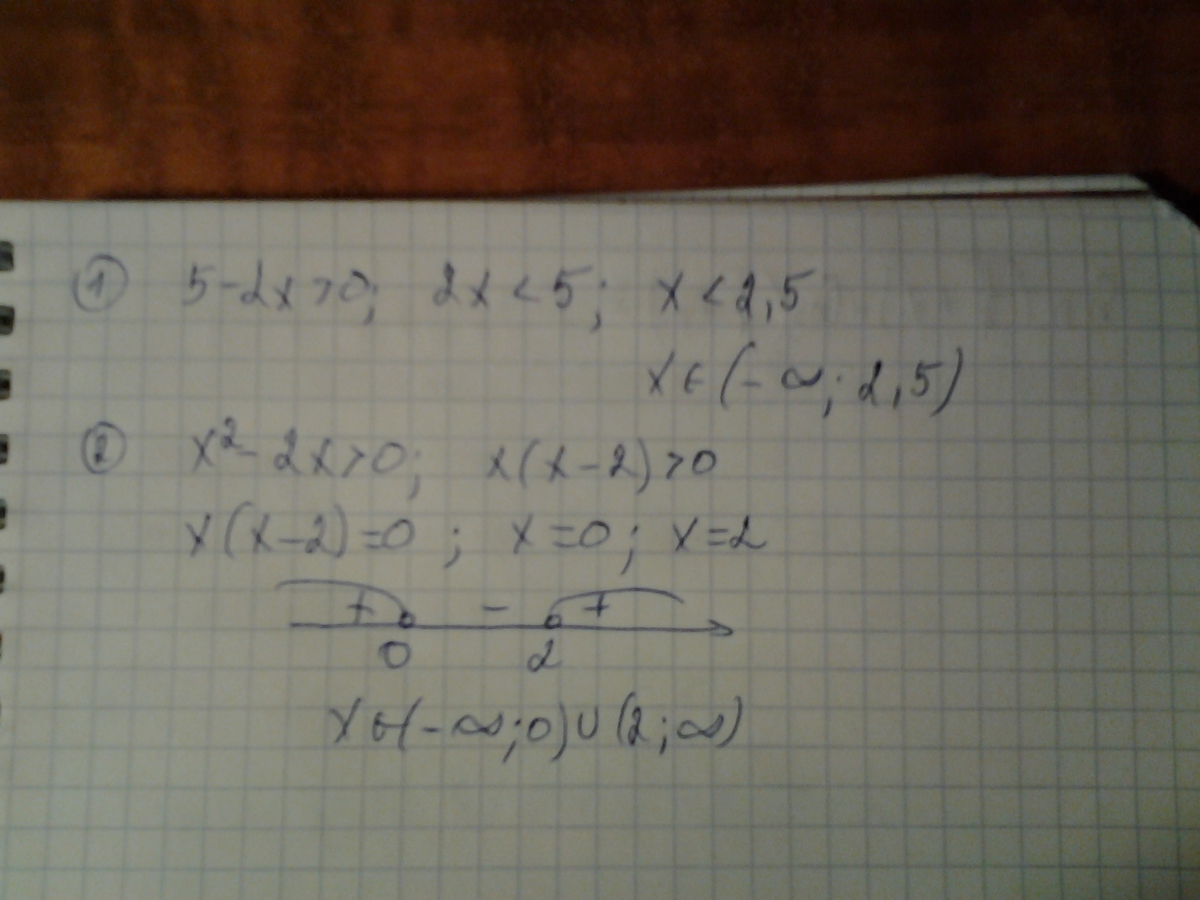 ① 5-2x>0; 2x<5; x<2,5
x∈(-∞; 2,5)
② x²-2x>0; x(x-2)>0
x(x-2)=0 ; x=0; x=2
+ - +
0 2
x∈(-∞;0)∪(2;∞)